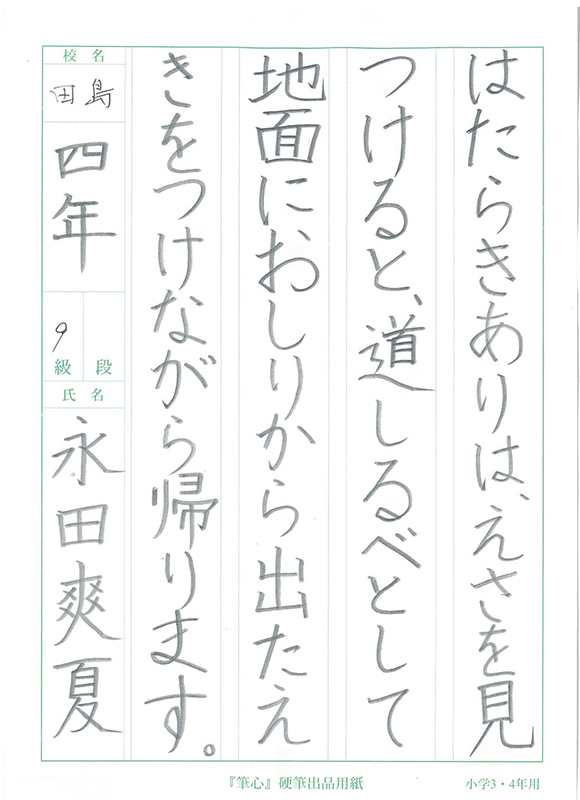 はたらきありは、えさを見
つけると、道しるべとして
地面におしりから出たえ
きをつけながら帰ります。
校名
田島
四年
9
級 段
氏名
永田爽夏
『筆心』硬筆出品用紙
小学3・4年用